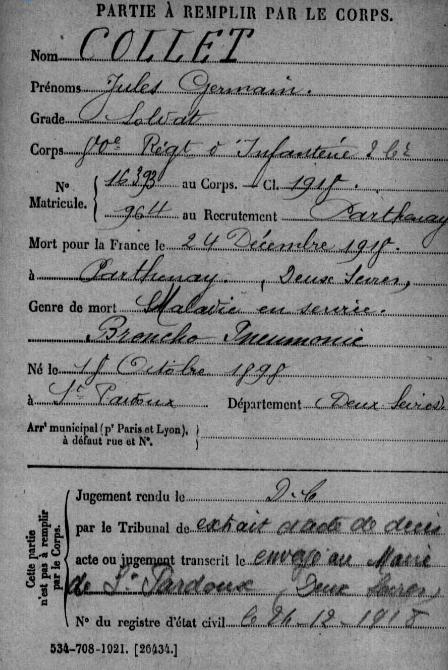 PARTIE À REMPLIR PAR LE CORPS.
Nom COLLET
Prénoms Jules Germain.
Grade Soldat
Corps Régt d'Infanterie
N° Matricule. { 16393 au Corps. — Cl. 1918.
964 au Recrutement Parthenay
Mort pour la France le 24 Décembre 1918.
à Parthenay. (Deux Sèvres)
Genre de mort Maladie en service.
Broncho Pneumonie
Né le 18 Octobre 1898
à St Pardoux Département Deux Sèvres
Arrt municipal (pr Paris et Lyon), à défaut rue et N°. }
Cette partie n'est pas à remplir par le Corps.
Jugement rendu le D.C
par le Tribunal de extrait d'acte de décès
acte ou jugement transcrit le envoyé au Maire
de St Pardoux (Deux Sèvres)
N° du registre d'état civil le 26-12-1918
534-708-1921. [26434.]